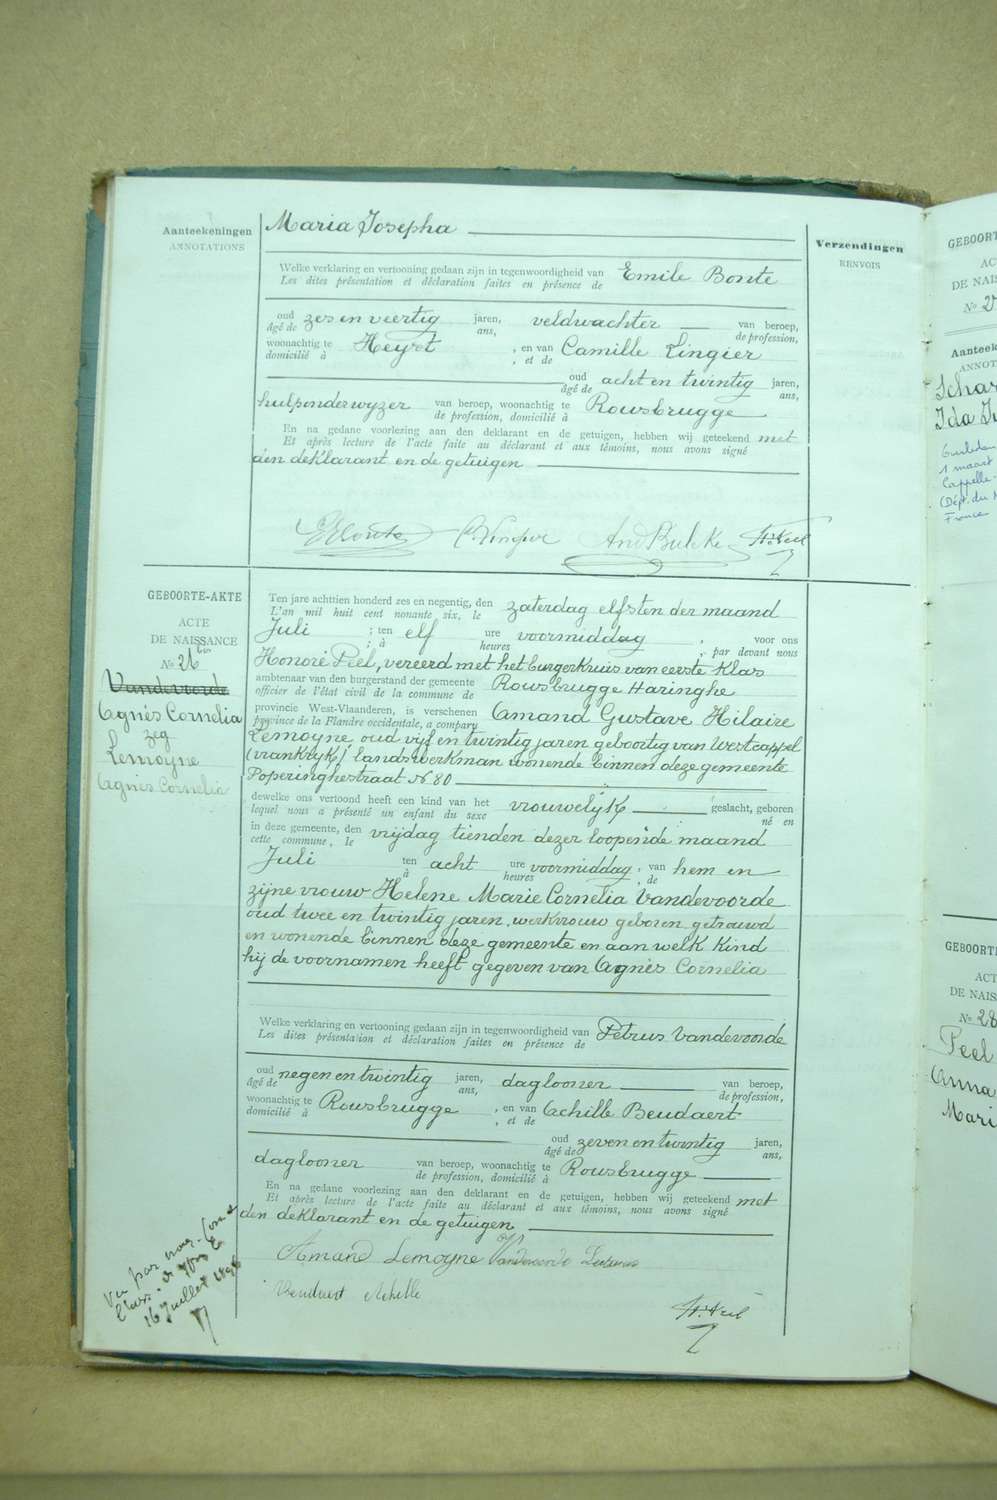 Aanteekeningen
ANNOTATIONS
Maria Josepha
Verzendingen
RENVOIS
Welke verklaring en vertooning gedaan zijn in tegenwoordigheid van Emile Bonte
Les dites présentation et déclaration faites en présence de
oud zes en veertig jaren, veldwachter van beroep,
âgé de ans, de profession,
woonachtig te Heyst, en van Camille Lingier
domicilié à , et de
oud acht en twintig jaren,
âgé de ans,
hulponderwyzer van beroep, woonachtig te Rousbrugge
de profession, domicilié à
En na gedane voorlezing aan den deklarant en de getuigen, hebben wij geteekend met
Et après lecture de l'acte faite au déclarant et aux témoins, nous avons signé
den deklarant en de getuigen
EBonte C. Lingier Am Bulcke H. Peel
GEBOORTE-AKTE
ACTE
DE NAISSANCE
No 26 bis
Vandevoorde
Agnès Cornelia
zeg
Lemoyne
Agnès Cornelia
Ten jare achttien honderd zes en negentig, den zaterdag elfsten der maand
L'an mil huit cent nonante six, le
Juli ; ten elf ure voormiddag , voor ons
; à heures , par devant nous
Honoré Peel, vereerd met het burgerkruis van eerste klas
ambtenaar van den burgerstand der gemeente Rousbrugge Haringhe
officier de l'état civil de la commune de
provincie West-Vlaanderen, is verschenen Amand Gustave Hilaire
province de la Flandre occidentale, a compary
Lemoyne oud vijf en twintig jaren geboortig van Westcappel
(vrankryk) landswerkman wonende binnen deze gemeente
Poperinghestraat No 80
dewelke ons vertoond heeft een kind van het vrouwelijk geslacht, geboren
lequel nous a présenté un enfant du sexe né en
in deze gemeente, den vrijdag tienden dezer loopende maand
cette commune, le
Juli ten acht ure voormiddag, van hem en
à heures , de
zijne vrouw Helene Marie Cornelia Vandevoorde
oud twee en twintig jaren, werkvrouw geboren getrouwd
en wonende binnen deze gemeente en aan welk kind
hij de voornamen heeft gegeven van Agnès Cornelia
Welke verklaring en vertooning gedaan zijn in tegenwoordigheid van Petrus Vandevoorde
Les dites présentation et déclaration faites en présence de
oud negen en twintig jaren, daglooner van beroep,
âgé de ans, de profession,
woonachtig te Rousbrugge , en van Achille Beudaert
domicilié à , et de
oud zeven en twintig jaren,
âgé de ans,
daglooner van beroep, woonachtig te Rousbrugge
de profession, domicilié à
En na gedane voorlezing aan den deklarant en de getuigen, hebben wij geteekend met
Et après lecture de l'acte faite au déclarant et aux témoins, nous avons signé
den deklarant en de getuigen
Amand Lemoyne Vandevoorde
Beudaert Achille
H. Peel
Vu par nous
16 Juillet 1896
GEBOORT
AC
DE NAI
No 2
Aanteek
ANNOT
Schar
Ida
1 maart
Cappelle
(Dépt. du
France
GEBOORT
ACT
DE NAIS
No 28
Peel
Anna
Mari